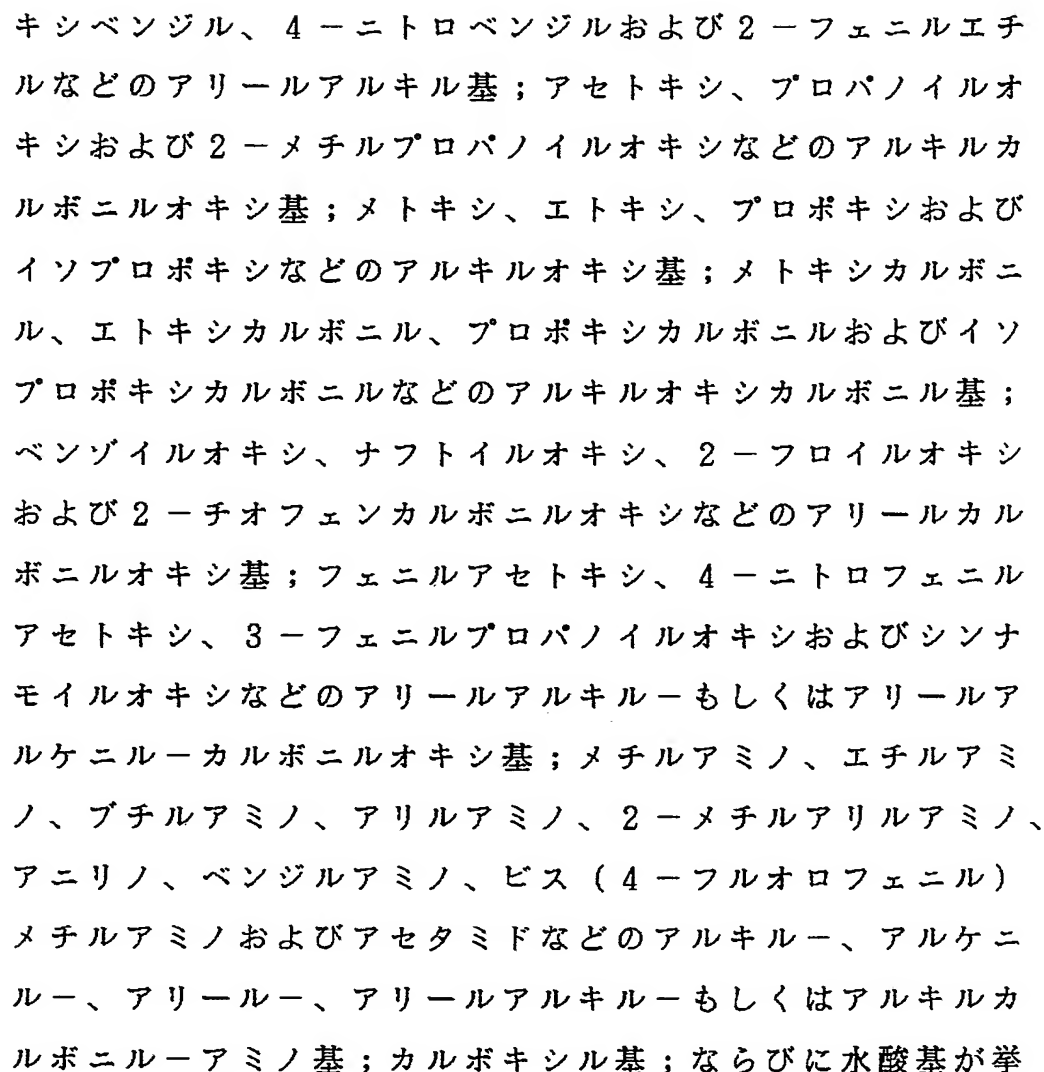 キシベンジル、4－ニトロベンジルおよび2－フェニルエチ
ルなどのアリールアルキル基；アセトキシ、プロパノイルオ
キシおよび2－メチルプロパノイルオキシなどのアルキルカ
ルボニルオキシ基；メトキシ、エトキシ、プロポキシおよび
イソプロポキシなどのアルキルオキシ基；メトキシカルボニ
ル、エトキシカルボニル、プロポキシカルボニルおよびイソ
プロポキシカルボニルなどのアルキルオキシカルボニル基；
ベンゾイルオキシ、ナフトイルオキシ、2－フロイルオキシ
および2－チオフェンカルボニルオキシなどのアリールカル
ボニルオキシ基；フェニルアセトキシ、4－ニトロフェニル
アセトキシ、3－フェニルプロパノイルオキシおよびシンナ
モイルオキシなどのアリールアルキル－もしくはアリールア
ルケニル－カルボニルオキシ基；メチルアミノ、エチルアミ
ノ、ブチルアミノ、アリルアミノ、2－メチルアリルアミノ、
アニリノ、ベンジルアミノ、ビス（4－フルオロフェニル）
メチルアミノおよびアセタミドなどのアルキル－、アルケニ
ル－、アリール－、アリールアルキル－もしくはアルキルカ
ルボニル－アミノ基；カルボキシル基；ならびに水酸基が挙